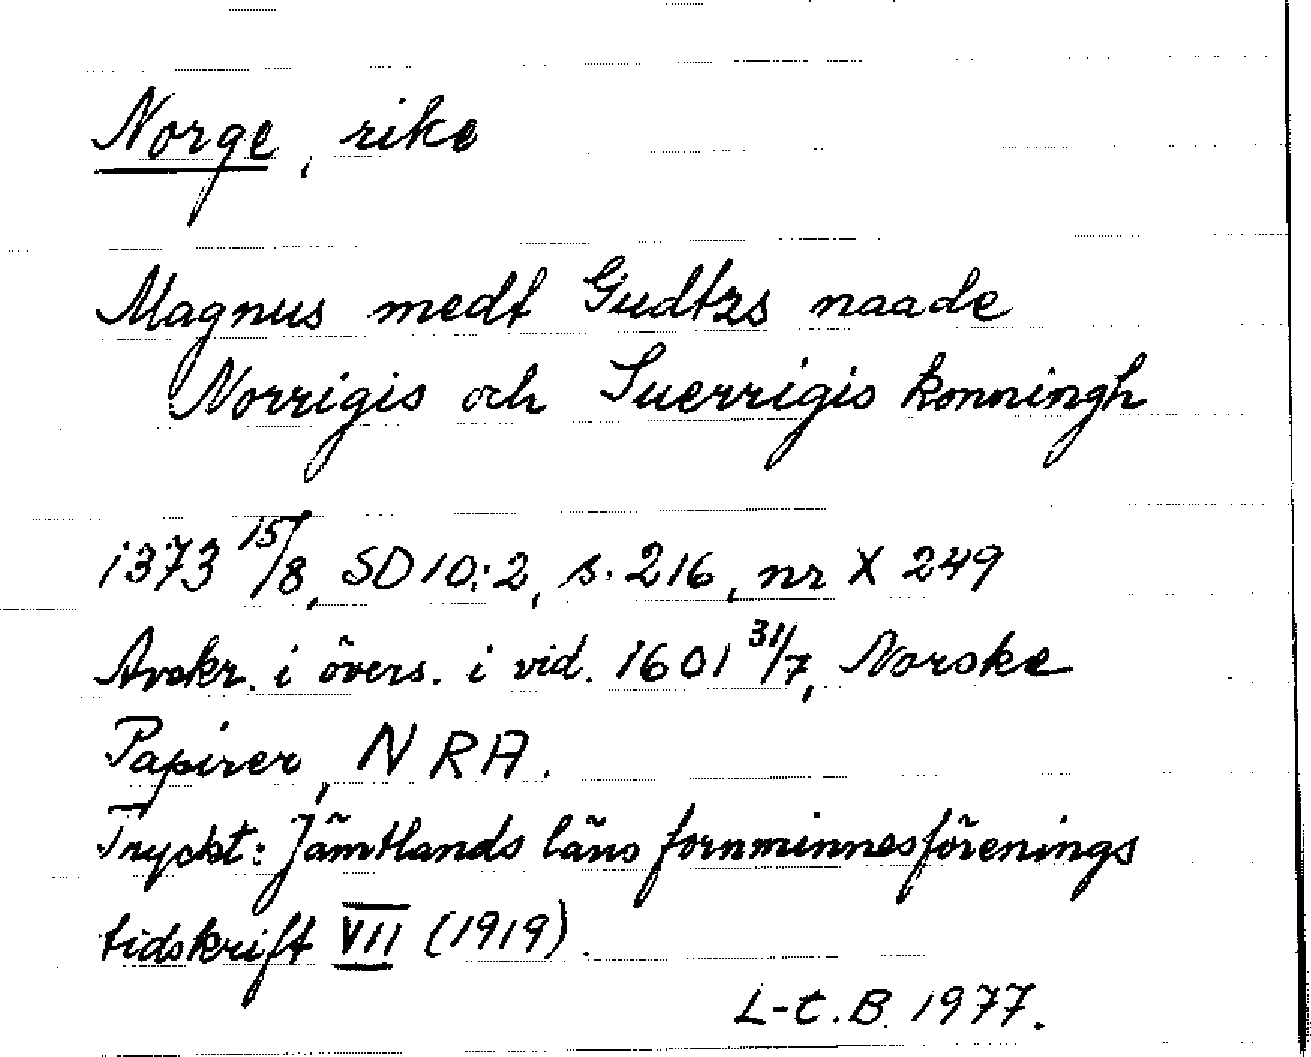 Norge, rike
Magnus medt Gudtzs naade
Norrigis och Suerrigis konningh
1373 15/8, SD 10:2, s. 216, nr X 249
Avskr. i övers. i vid. 1601 31/7, Norske
Papirer, NRA.
Tryckt: Jämtlands läns fornminnesförenings
tidskrift VII (1919).
L-C.B. 1977.